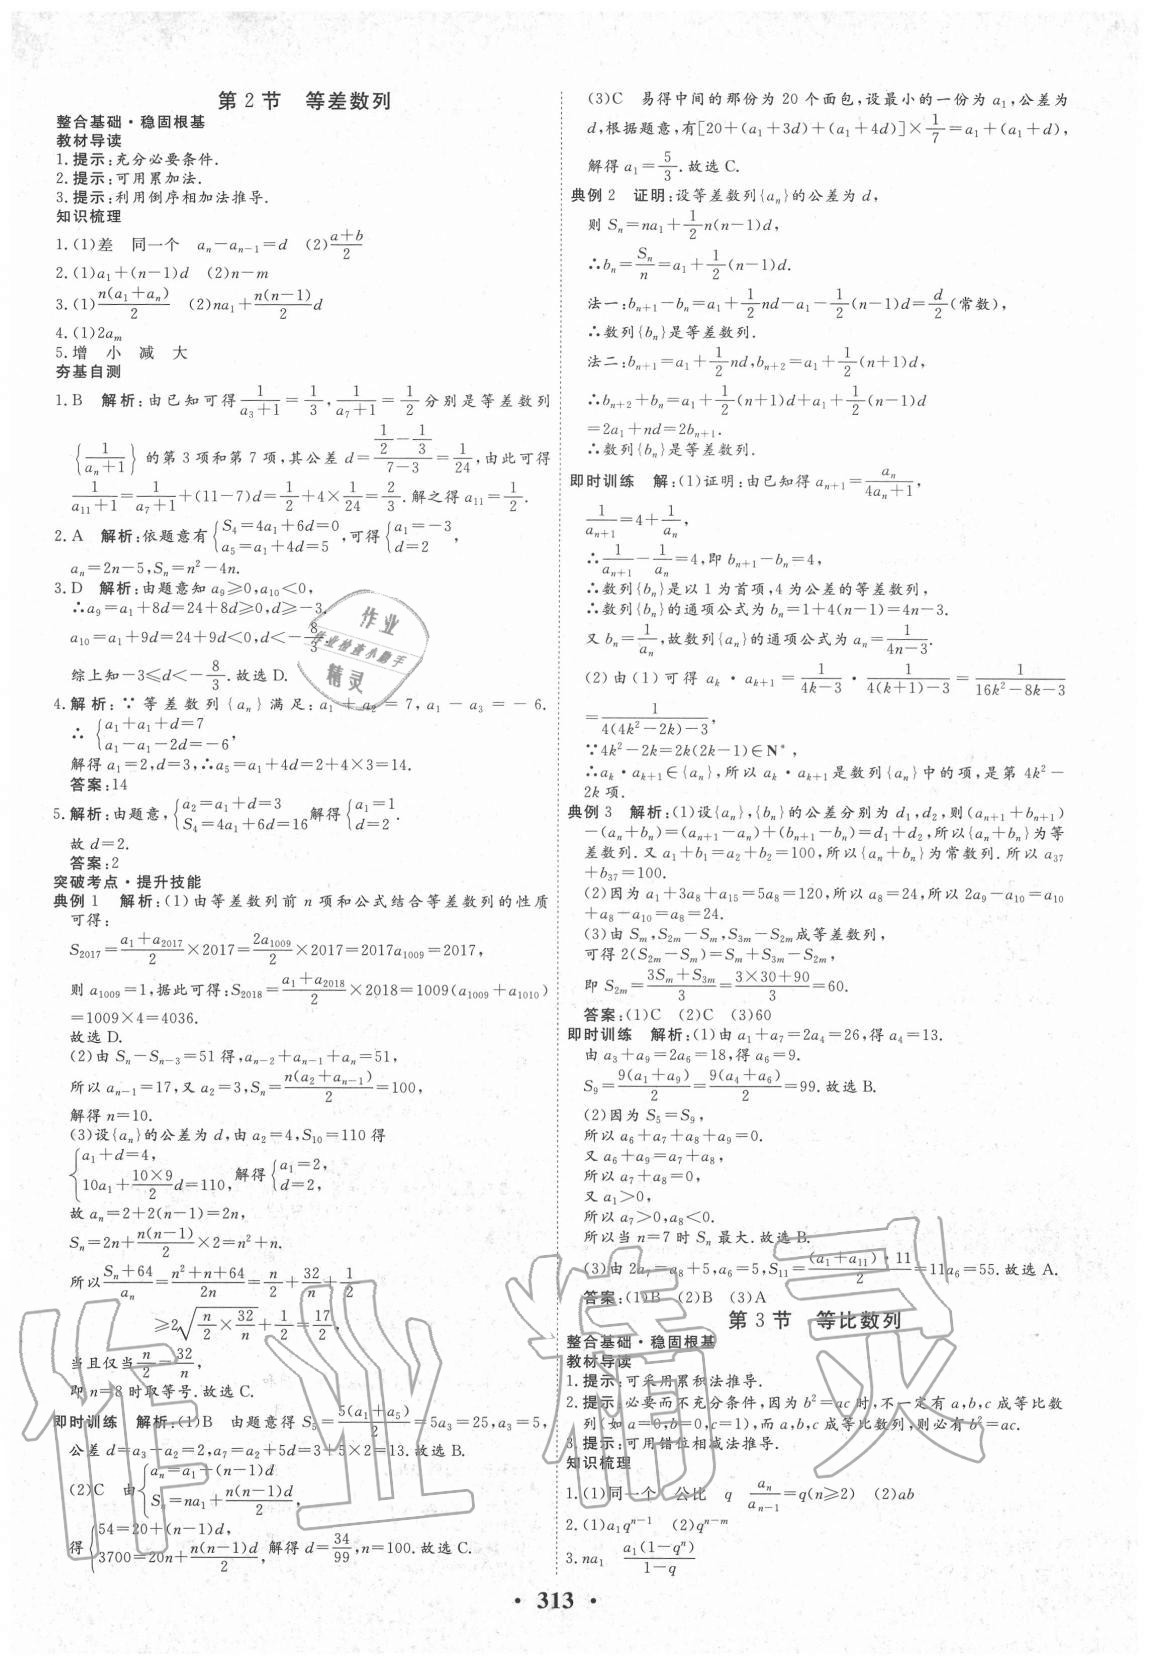 第 2 节　等差数列
整合基础·稳固根基
教材导读
1.提示:充分必要条件.
2.提示:可用累加法.
3.提示:利用倒序相加法推导.
知识梳理
1.(1)差　同一个　aₙ-aₙ₋₁=d　(2)(a+b)/2
2.(1)a₁+(n-1)d　(2)n-m
3.(1)n(a₁+aₙ)/2　(2)na₁+n(n-1)/2 d
4.(1)2aₘ
5.增　小　减　大
夯基自测
1.B　解析:由已知可得 1/(a₃+1)=1/3,1/(a₇+1)=1/2 分别是等差数列
{1/(aₙ+1)} 的第 3 项和第 7 项,其公差 d=(1/2-1/3)/(7-3)=1/24,由此可得
1/(a₁₁+1)=1/(a₇+1)+(11-7)d=1/2+4×1/24=2/3.解之得 a₁₁=1/2.
2.A　解析:依题意有{S₄=4a₁+6d=0 a₅=a₁+4d=5,可得{a₁=-3 d=2,
aₙ=2n-5,Sₙ=n²-4n.
3.D　解析:由题意知 a₉≥0,a₁₀<0,
∴a₉=a₁+8d=24+8d≥0,d≥-3.
a₁₀=a₁+9d=24+9d<0,d<-8/3
综上知-3≤d<-8/3.故选 D.
4.解析:∵等差数列{aₙ}满足:a₁+a₂=7,a₁-a₃=-6.
∴{a₁+a₁+d=7 a₁-a₁-2d=-6,
解得 a₁=2,d=3,∴a₅=a₁+4d=2+4×3=14.
答案:14
5.解析:由题意,{a₂=a₁+d=3 S₄=4a₁+6d=16 解得{a₁=1 d=2.
故 d=2.
答案:2
突破考点·提升技能
典例 1　解析:(1)由等差数列前 n 项和公式结合等差数列的性质
可得:
S₂₀₁₇=(a₁+a₂₀₁₇)/2×2017=2a₁₀₀₉/2×2017=2017a₁₀₀₉=2017,
则 a₁₀₀₉=1,据此可得:S₂₀₁₈=(a₁+a₂₀₁₈)/2×2018=1009(a₁₀₀₉+a₁₀₁₀)
=1009×4=4036.
故选 D.
(2)由 Sₙ-Sₙ₋₃=51 得,aₙ₋₂+aₙ₋₁+aₙ=51,
所以 aₙ₋₁=17,又 a₂=3,Sₙ=n(a₂+aₙ₋₁)/2=100,
解得 n=10.
(3)设{aₙ}的公差为 d,由 a₂=4,S₁₀=110 得
{a₁+d=4, 10a₁+10×9/2 d=110, 解得{a₁=2, d=2,
故 aₙ=2+2(n-1)=2n,
Sₙ=2n+n(n-1)/2×2=n²+n.
所以(Sₙ+64)/aₙ=(n²+n+64)/2n=n/2+32/n+1/2
≥2√(n/2×32/n)+1/2=17/2,
当且仅当 n/2=32/n,
即 n=8 时取等号.故选 C.
即时训练　解析:(1)B　由题意得 S₅=5(a₁+a₅)/2=5a₃=25,a₃=5,
公差 d=a₃-a₂=2,a₇=a₂+5d=3+5×2=13.故选 B.
(2)C　由{aₙ=a₁+(n-1)d Sₙ=na₁+n(n-1)d/2,
得{54=20+(n-1)d, 3700=20n+n(n-1)d/2, 解得 d=34/99,n=100.故选 C.
(3)C　易得中间的那份为 20 个面包,设最小的一份为 a₁,公差为
d,根据题意,有[20+(a₁+3d)+(a₁+4d)]×1/7=a₁+(a₁+d),
解得 a₁=5/3.故选 C.
典例 2　证明:设等差数列{aₙ}的公差为 d,
则 Sₙ=na₁+1/2 n(n-1)d,
∴bₙ=Sₙ/n=a₁+1/2(n-1)d.
法一:bₙ₊₁-bₙ=a₁+1/2 nd-a₁-1/2(n-1)d=d/2(常数),
∴数列{bₙ}是等差数列.
法二:bₙ₊₁=a₁+1/2 nd,bₙ₊₂=a₁+1/2(n+1)d,
∴bₙ₊₂+bₙ=a₁+1/2(n+1)d+a₁+1/2(n-1)d
=2a₁+nd=2bₙ₊₁.
∴数列{bₙ}是等差数列.
即时训练　解:(1)证明:由已知得 aₙ₊₁=aₙ/(4aₙ+1),
1/aₙ₊₁=4+1/aₙ,
∴1/aₙ₊₁-1/aₙ=4,即 bₙ₊₁-bₙ=4,
∴数列{bₙ}是以 1 为首项,4 为公差的等差数列,
∴数列{bₙ}的通项公式为 bₙ=1+4(n-1)=4n-3.
又 bₙ=1/aₙ,故数列{aₙ}的通项公式为 aₙ=1/(4n-3).
(2)由(1)可得 aₖ·aₖ₊₁=1/(4k-3)·1/(4(k+1)-3)=1/(16k²-8k-3)
=1/(4(4k²-2k)-3),
∵4k²-2k=2k(2k-1)∈N*,
∴aₖ·aₖ₊₁∈{aₙ},所以 aₖ·aₖ₊₁是数列{aₙ}中的项,是第 4k²-
2k 项.
典例 3　解析:(1)设{aₙ},{bₙ}的公差分别为 d₁,d₂,则(aₙ₊₁+bₙ₊₁)
-(aₙ+bₙ)=(aₙ₊₁-aₙ)+(bₙ₊₁-bₙ)=d₁+d₂,所以{aₙ+bₙ}为等
差数列.又 a₁+b₁=a₂+b₂=100,所以{aₙ+bₙ}为常数列.所以 a₃₇
+b₃₇=100.
(2)因为 a₁+3a₈+a₁₅=5a₈=120,所以 a₈=24,所以 2a₉-a₁₀=a₁₀
+a₈-a₁₀=a₈=24.
(3)由 Sₘ,S₂ₘ-Sₘ,S₃ₘ-S₂ₘ成等差数列,
可得 2(S₂ₘ-Sₘ)=Sₘ+S₃ₘ-S₂ₘ,
即 S₂ₘ=(3Sₘ+S₃ₘ)/3=(3×30+90)/3=60.
答案:(1)C　(2)C　(3)60
即时训练　解析:(1)由 a₁+a₇=2a₄=26,得 a₄=13.
由 a₃+a₉=2a₆=18,得 a₆=9.
S₉=9(a₁+a₉)/2=9(a₄+a₆)/2=99.故选 B.
(2)因为 S₅=S₉,
所以 a₆+a₇+a₈+a₉=0.
又 a₆+a₉=a₇+a₈,
所以 a₇+a₈=0,
又 a₁>0,
所以 a₇>0,a₈<0.
所以当 n=7 时 Sₙ 最大.故选 B.
(3)由 2a₇=a₈+5,a₆=5,S₁₁=(a₁+a₁₁)·11/2=11a₆=55.故选 A.
答案:(1)B　(2)B　(3)A
第 3 节　等比数列
整合基础·稳固根基
教材导读
1.提示:可采用累积法推导.
2.提示:必要而不充分条件,因为 b²=ac 时,不一定有 a,b,c 成等比数
列(如 a=0,b=0,c=1),而 a,b,c 成等比数列,则必有 b²=ac.
3.提示:可用错位相减法推导.
知识梳理
1.(1)同一个　公比　q　aₙ/aₙ₋₁=q(n≥2)　(2)ab
2.(1)a₁qⁿ⁻¹　(2)qⁿ⁻ᵐ
3.na₁　a₁(1-qⁿ)/(1-q)
· 313 ·
作业
作业检查小助手
精灵
作业精灵